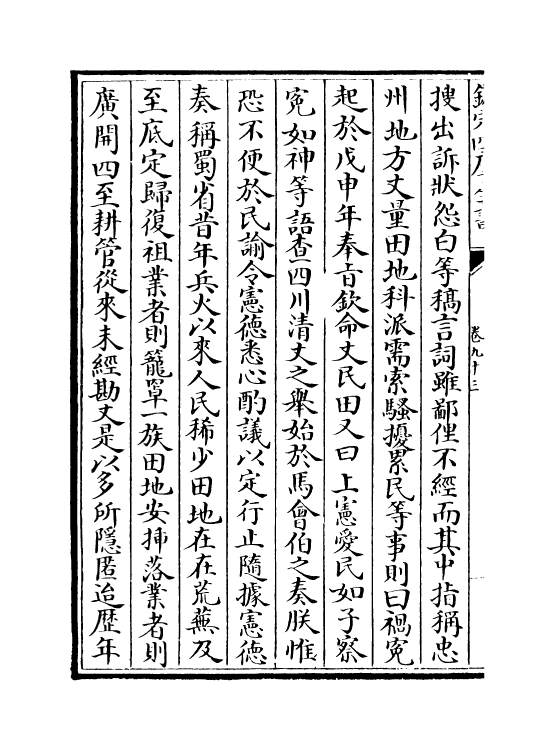 卷九十三
搜出訴狀怨白等稿言詞雖鄙俚不經而其中指稱忠
州地方丈量田地科派需索騷擾累民等事則曰禍寃
起於戊申年奉旨欽命丈民田又曰上憲愛民如子察
寃如神等語查四川清丈之舉始於馬會伯之奏朕惟
恐不便於民諭令憲德悉心酌議以定行止隨據憲德
奏稱蜀省昔年兵火以來人民稀少田地在在荒蕪及
至底定歸復祖業者則籠罩一族田地安揷落業者則
廣開四至耕管從來未經勘丈是以多所隱匿迨歴年